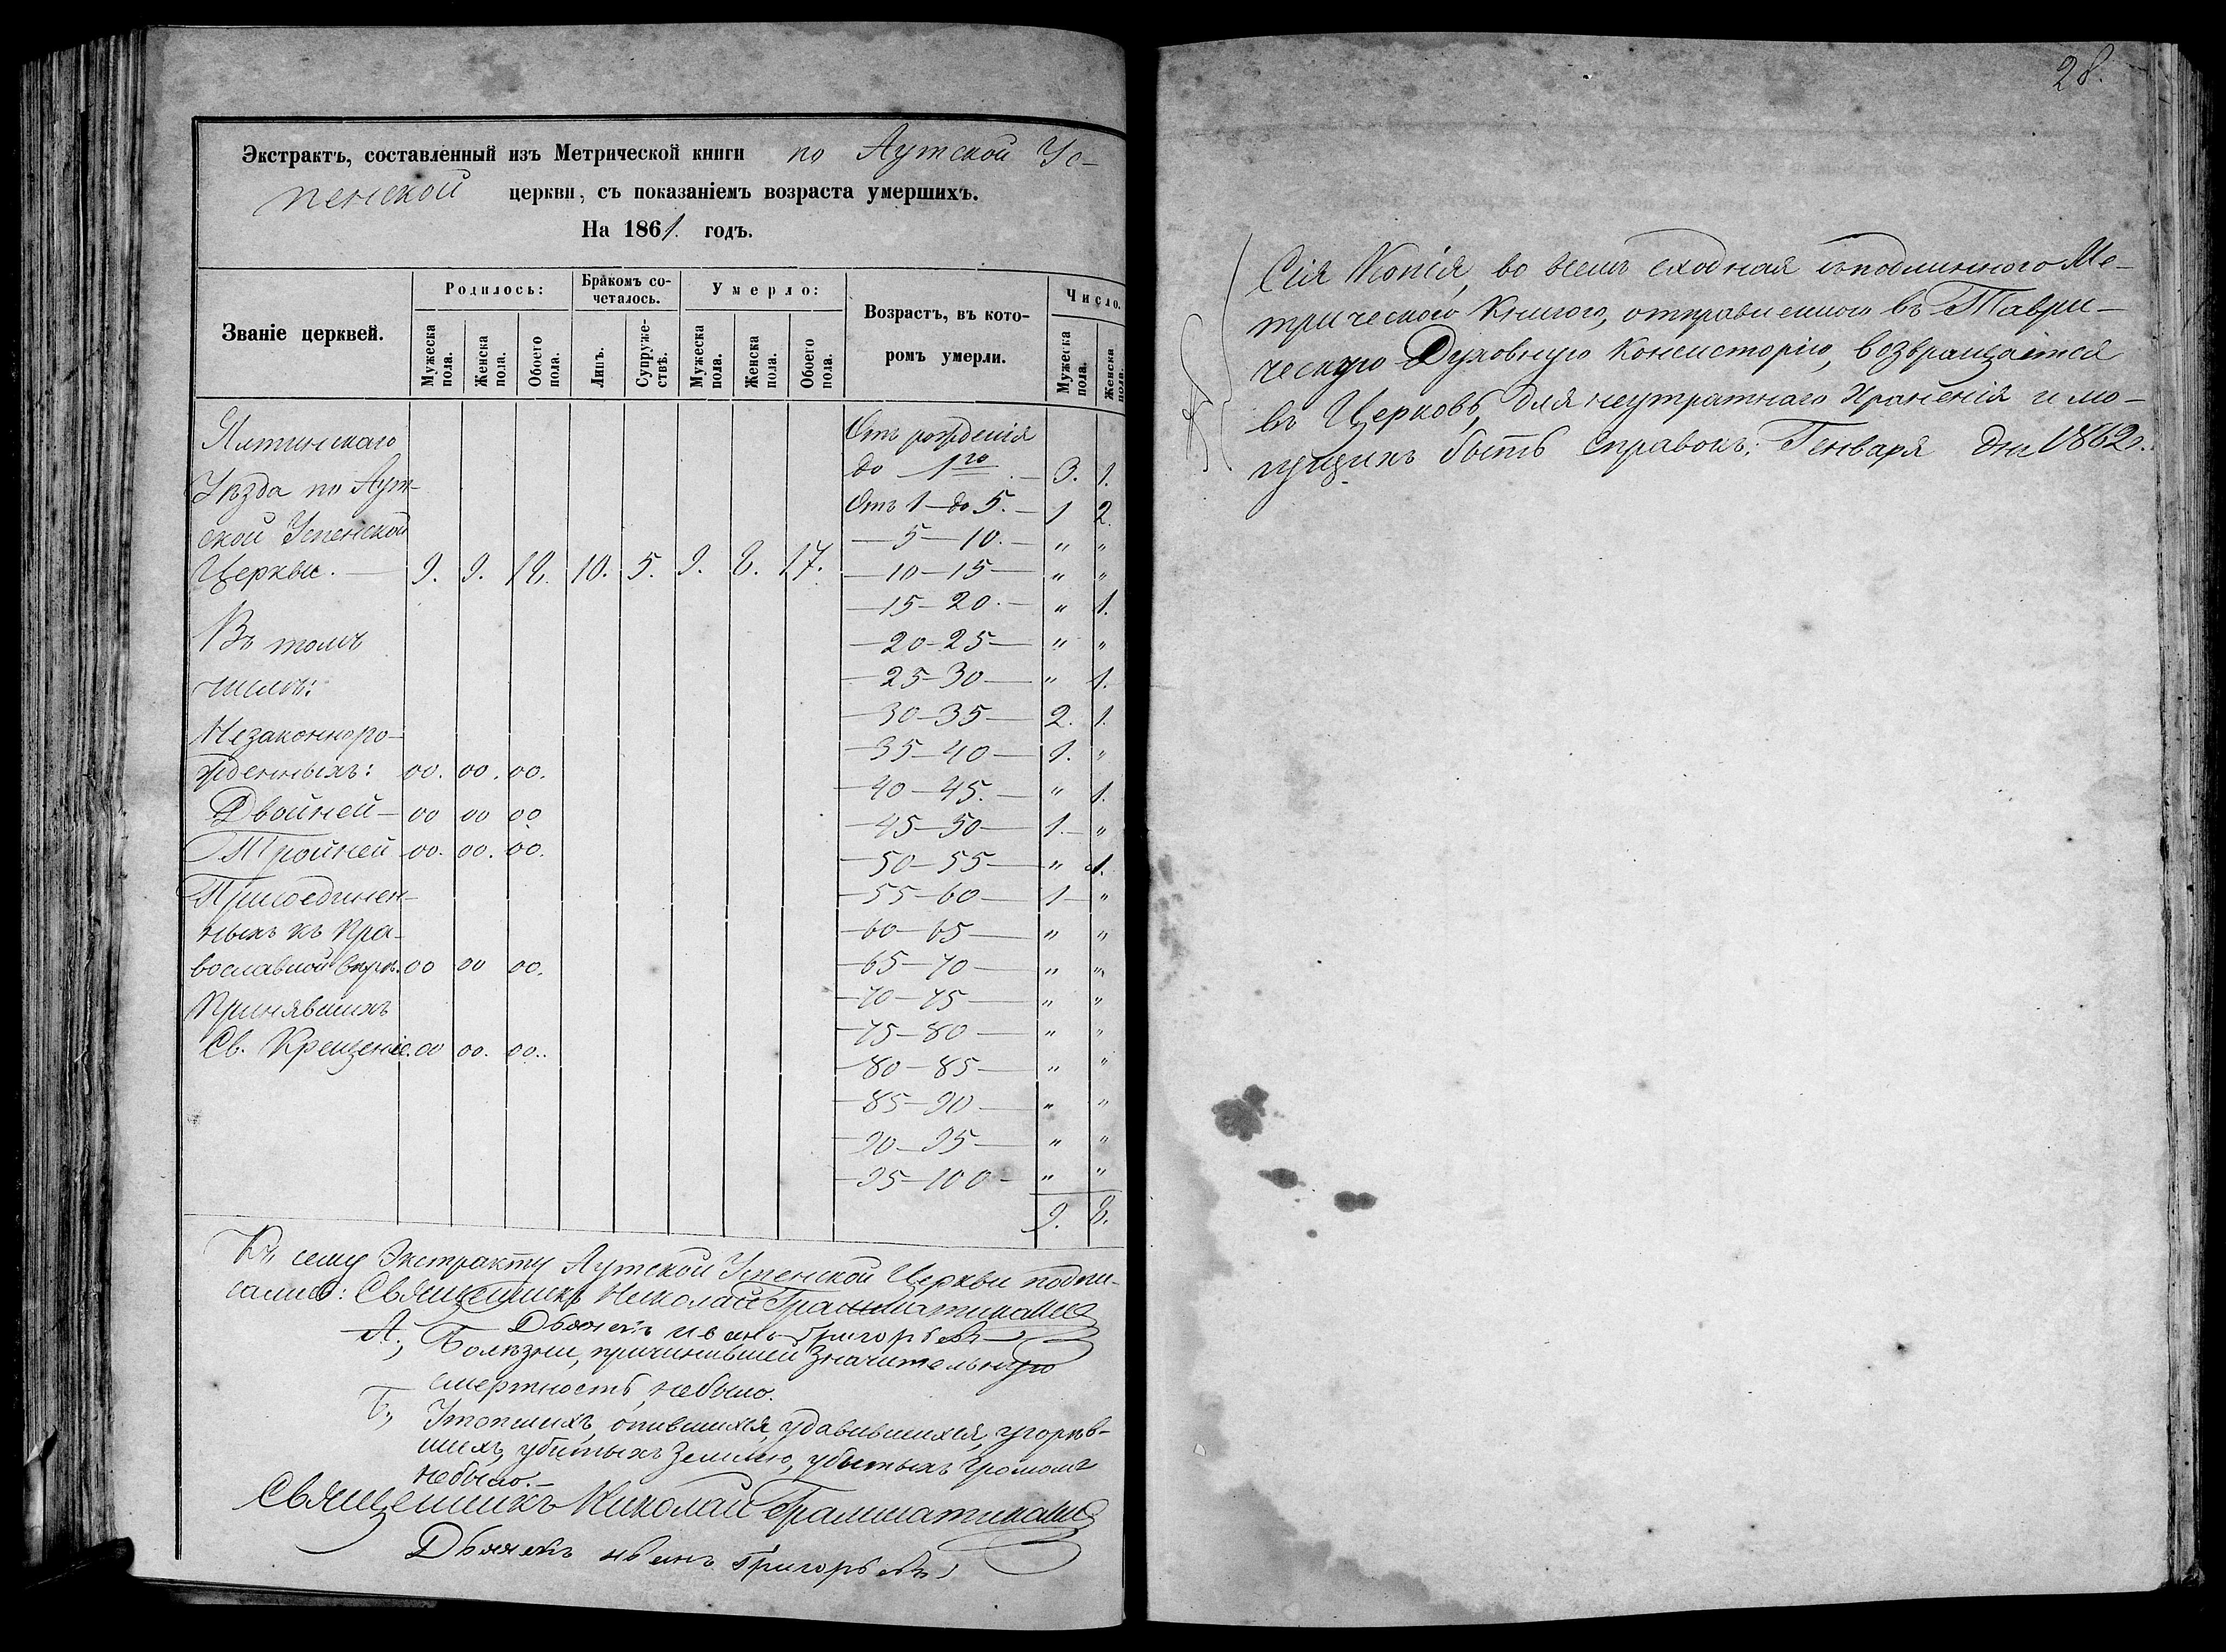 Экстрактъ, составленный изъ Метрической книги по Аутской Ус-
пенской церкви, съ показаніемъ возраста умершихъ.
На 1861. годъ.
Званіе церквей.
Родилось:
Мужеска пола.
Женска пола.
Обоего пола.
Бракомъ со-
четалось.
Лицъ.
Супруже-
ствъ.
Умерло:
Мужеска пола.
Женска пола.
Обоего пола.
Возрастъ, въ кото-
ромъ умерли.
Число.
Мужеска пола.
Женска пола.
Ялтинскаго
Уѣзда по Аут-
ской Успенской
Церкви. — 9. 9. 18. 10. 5. 9. 8. 17.
Въ томъ
числѣ:
Незаконноро-
жденныхъ: 00. 00. 00.
Двойней — 00 00 00
Тройней 00. 00. 00.
Присоединен-
ныхъ къ Пра-
вославной вѣрѣ. 00 00 00.
Принявшихъ
Св. Крещеніе. 00 00. 00.
Отъ рожденія
до 1го — 3. 1.
Отъ 1 — до 5. — 1 2.
— 5 — 10. — " "
— 10 — 15 — " "
— 15 — 20. — " 1.
— 20 — 25 — " "
— 25 — 30 — " 1.
— 30 — 35 — 2. 1.
— 35 — 40 — 1. "
— 40 — 45. — " 1.
— 45 — 50 — 1. — "
— 50 — 55 — " 1.
— 55 — 60 — 1 — "
— 60 — 65 — " "
— 65 — 70 — " "
— 70 — 75 — " "
— 75 — 80 — " "
— 80 — 85 — " "
— 85 — 90 — " "
— 90 — 95 — " "
— 95 — 100 — " "
9. 8.
Къ сему Экстракту Аутской Успенской Церкви подпи-
сались: Священникъ Николай Грамматикати
Дьячекъ Иванъ Григорьевъ
А., Болѣзни, причинившей значительную
смертность, небыло.
Б., Утопшихъ, опившихся, удавившихся, угорѣв-
шихъ, убитыхъ землею, убитыхъ громомъ
небыло. —
Священникъ Николай Грамматикати
Дьячекъ Иванъ Григорьевъ
28.
Сія Копія, во всемъ сходная съ подлинною Ме-
трическою Книгою, отправленною въ Таври-
ческую Духовную Консисторію, возвращается
въ Церковь, для неутратнаго храненія и мо-
гущихъ быть справокъ. Генваря дня 1862 г.